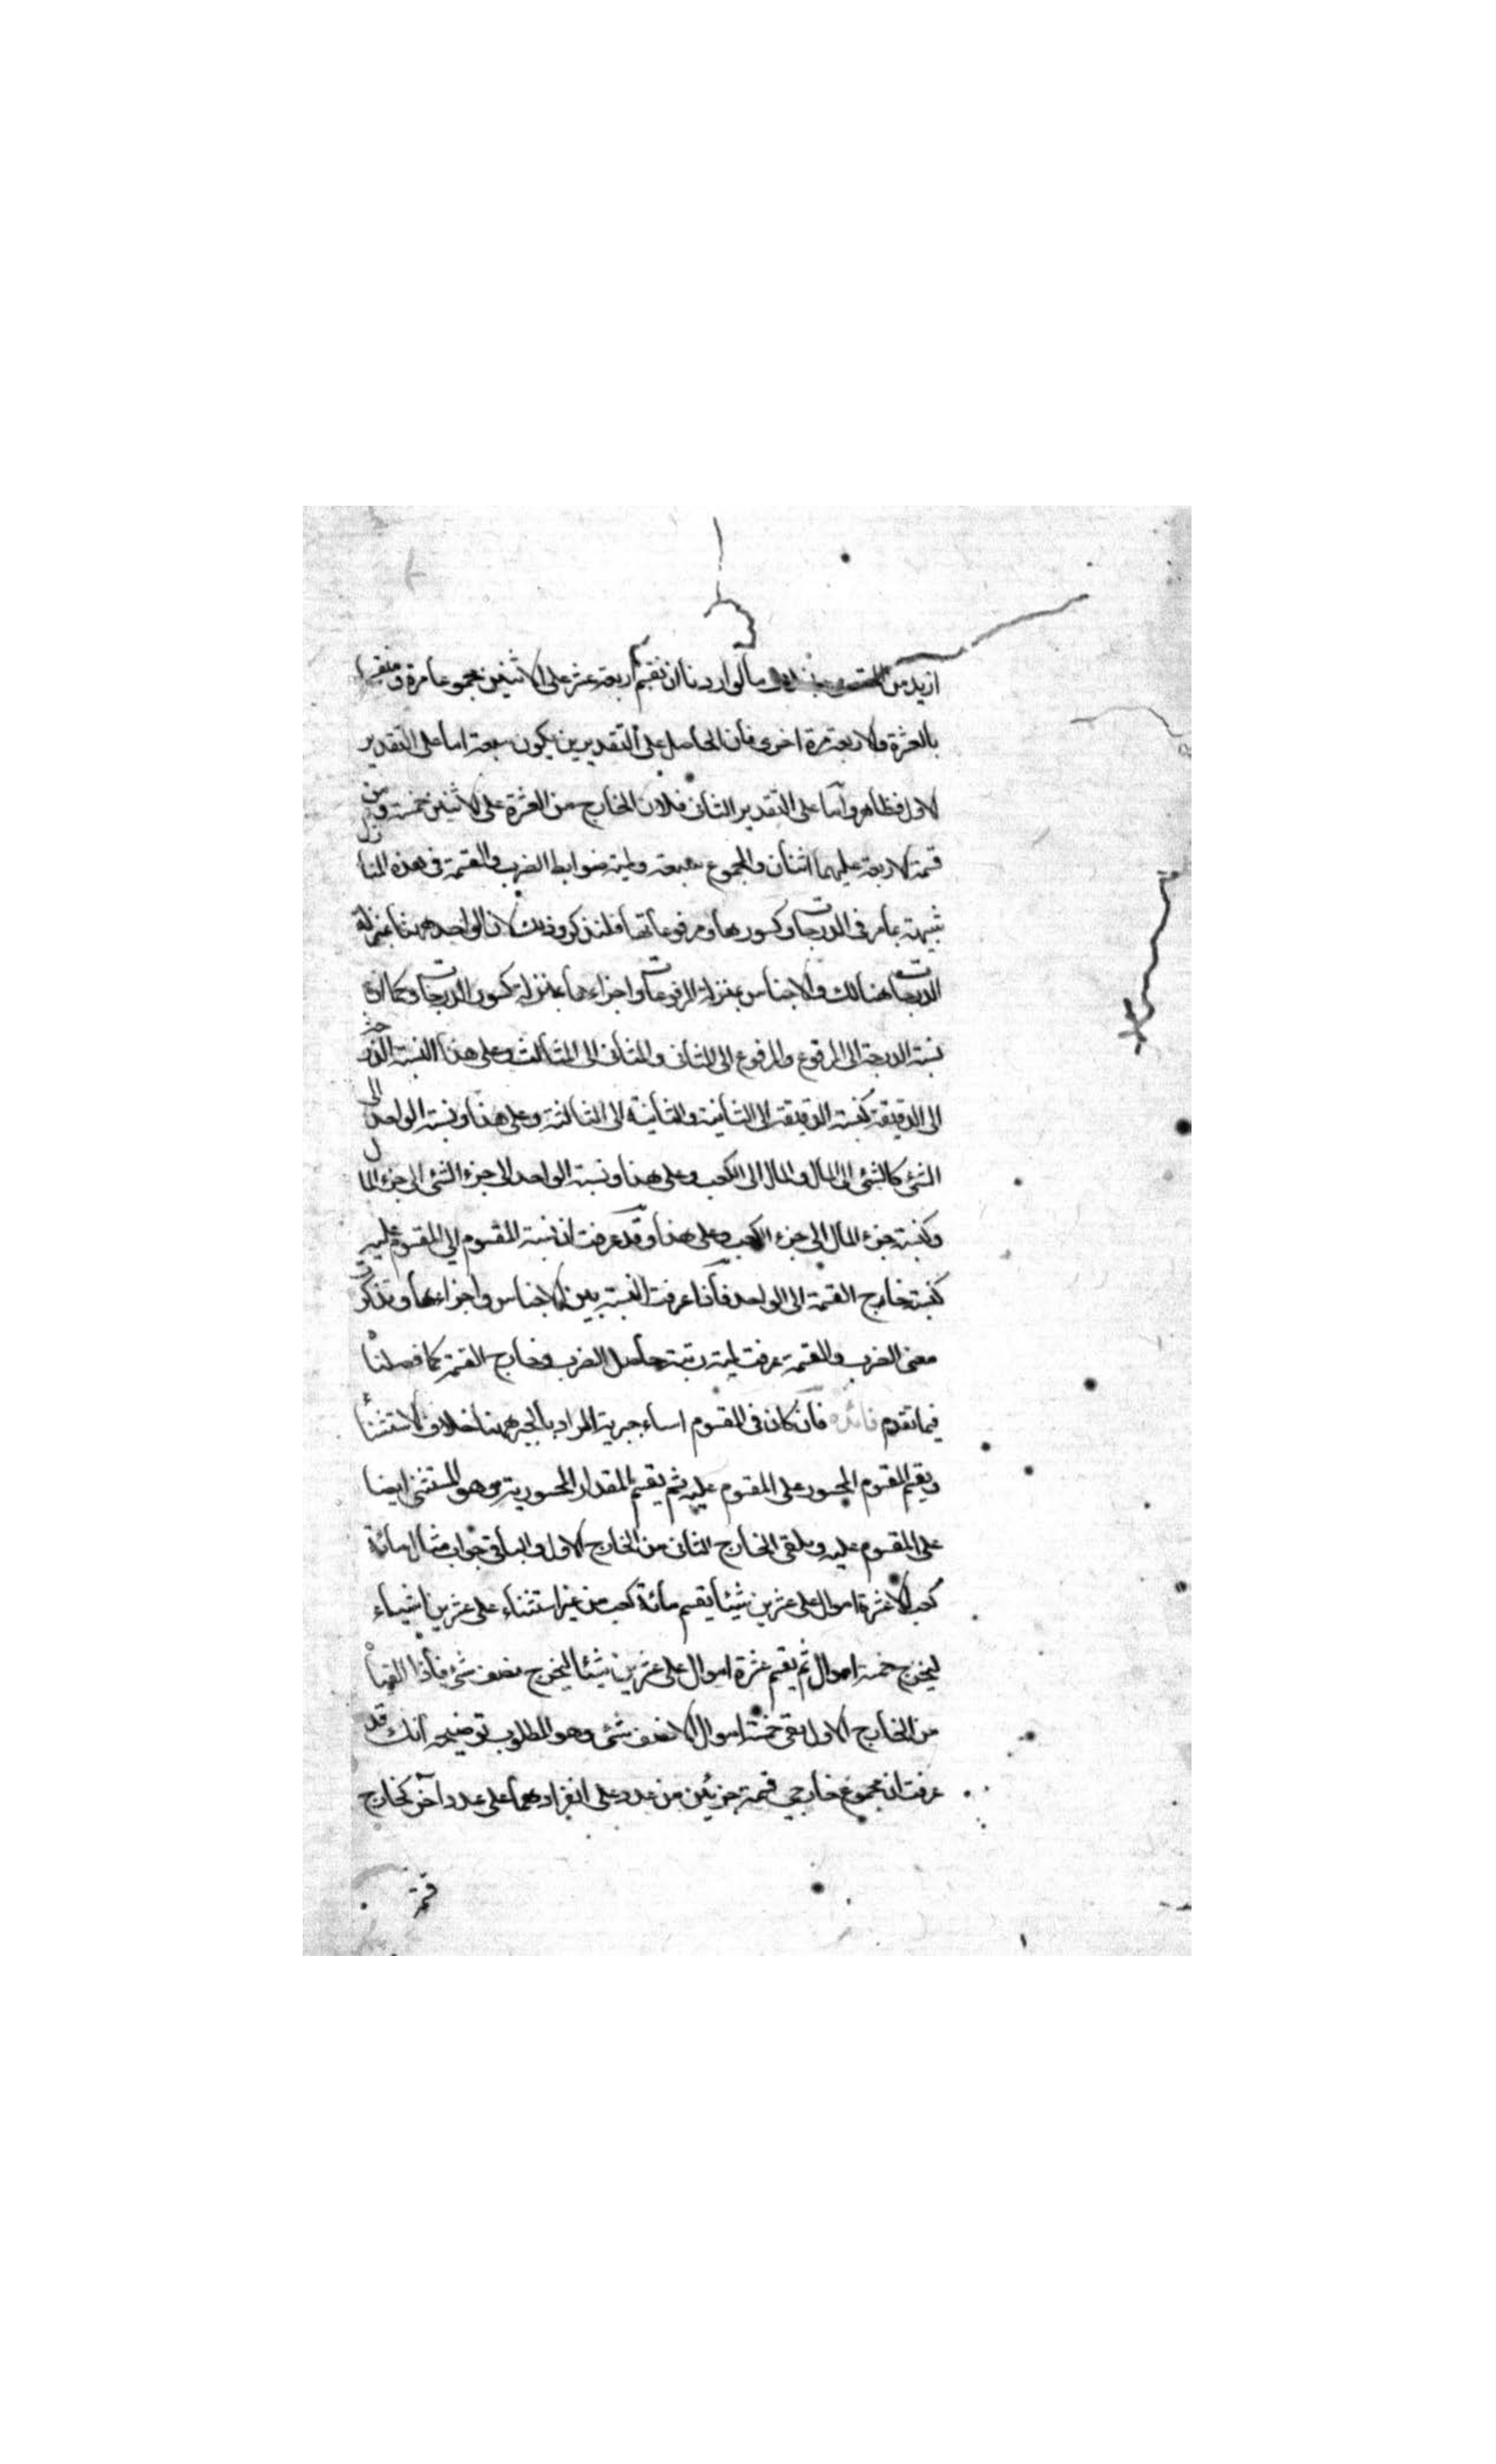 ازيد من مثاله لو اردنا ان نقسم اربعة عشر على الاثنين مجموعا مرة ومنفردا
بالعشرة والاربعة مرة اخرى فان الحاصل على التقديرين يكون سبعة اما على التقدير
الاول فظاهر واما على التقدير الثانى فلان الخارج من العشرة على الاثنين خمسة ومن
قسمة الاربعة عليهما اثنان والمجموع سبعة ولمية ضوابط الضرب والقسمة فى هذه المنازل
شبيهة بما مر فى الدرجات وكسورها ومرفوعاتها فلنذكر وذلك لان الواحد ههنا بمنزلة
الدرجات هنالك والاجناس بمنزلة المرفوعات واجزاءها بمنزلة كسور الدرجات وكما ان
نسبة الدرجة الى المرفوع والمرفوع الى المثانى والمثانى الى المثالث وعلى هذا كنسبة الدرجة
الى الدقيقة كنسبة الدقيقة الى الثانية والثانية الى الثالثة وعلى هذا ونسبة الواحد الى
الشئ كالشئ الى المال والمال الى الكعب وعلى هذا ونسبة الواحد الى جزء الشئ الى جزء المال
وكنسبة جزء المال الى جزء الكعب وعلى هذا وقد عرفت ان نسبة المقسوم الى المقسوم عليه
كنسبة خارج القسمة الى الواحد فاذا عرفت النسبة بين الاجناس واجزاءها وتذكرت
معنى الضرب والقسمة عرفت لمية رتبة حاصل الضرب وخارج القسمة كما فصلناه
فيما تقدم فائدة فان كان فى المقسوم اسماء جبرية المراد بالجبر ههنا خلاف الاستثناء
ويقسم المقسوم المجبور على المقسوم عليه ثم يقسم المقدار المجبور به وهو المستثنى ايضا
على المقسوم عليه ويلقى الخارج الثانى من الخارج الاول والباقى جواب مثاله مائة
كعب الا عشرة اموال على عشرين شيئا يقسم مائة كعب من غير استثناء على عشرين اشياء
ليخرج خمسة اموال ثم يقسم عشرة اموال على عشرين شيئا ليخرج نصف شئ فاذا القيناه
من الخارج الاول بقى خمسة اموال الا نصف شئ وهو المطلوب توضيحه انك قد
عرفت ان مجموع خارجى قسمة جزئين من عدد على انفرادهما على عدد آخر كخارج
قسمة